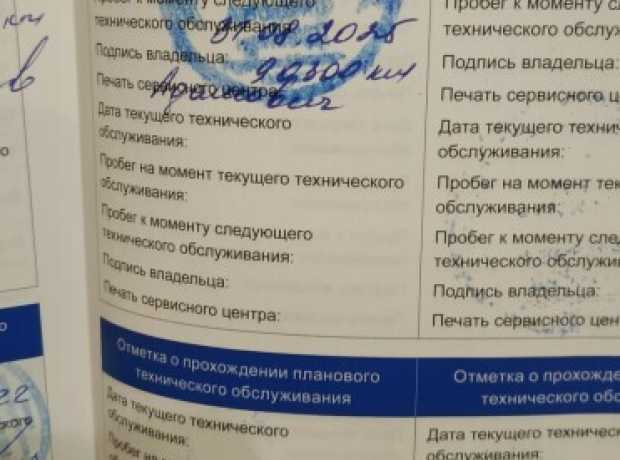 км
Пробег к моменту следующего
технического обслуживания:
31.08.2025
Подпись владельца:
90500 км
Печать сервисного центра:
Дата текущего технического
обслуживания:
Пробег на момент текущего технического
обслуживания:
Пробег к моменту следующего
технического обслуживания:
Подпись владельца:
Печать сервисного центра:
Отметка о прохождении планового
технического обслуживания
Дата текущего технического
обслуживания:
Пробег на
Пробег к моменту сл
технического обслуж
Подпись владельца:
Печать сервисного ц
Дата текущего технич
обслуживания:
Пробег на момент тек
обслуживания:
Пробег к моменту след
технического обслужи
Подпись владельца:
Печать сервисного цен
Отметка о прохожде
технического обс
Дата текущего техничес
обслуживания: